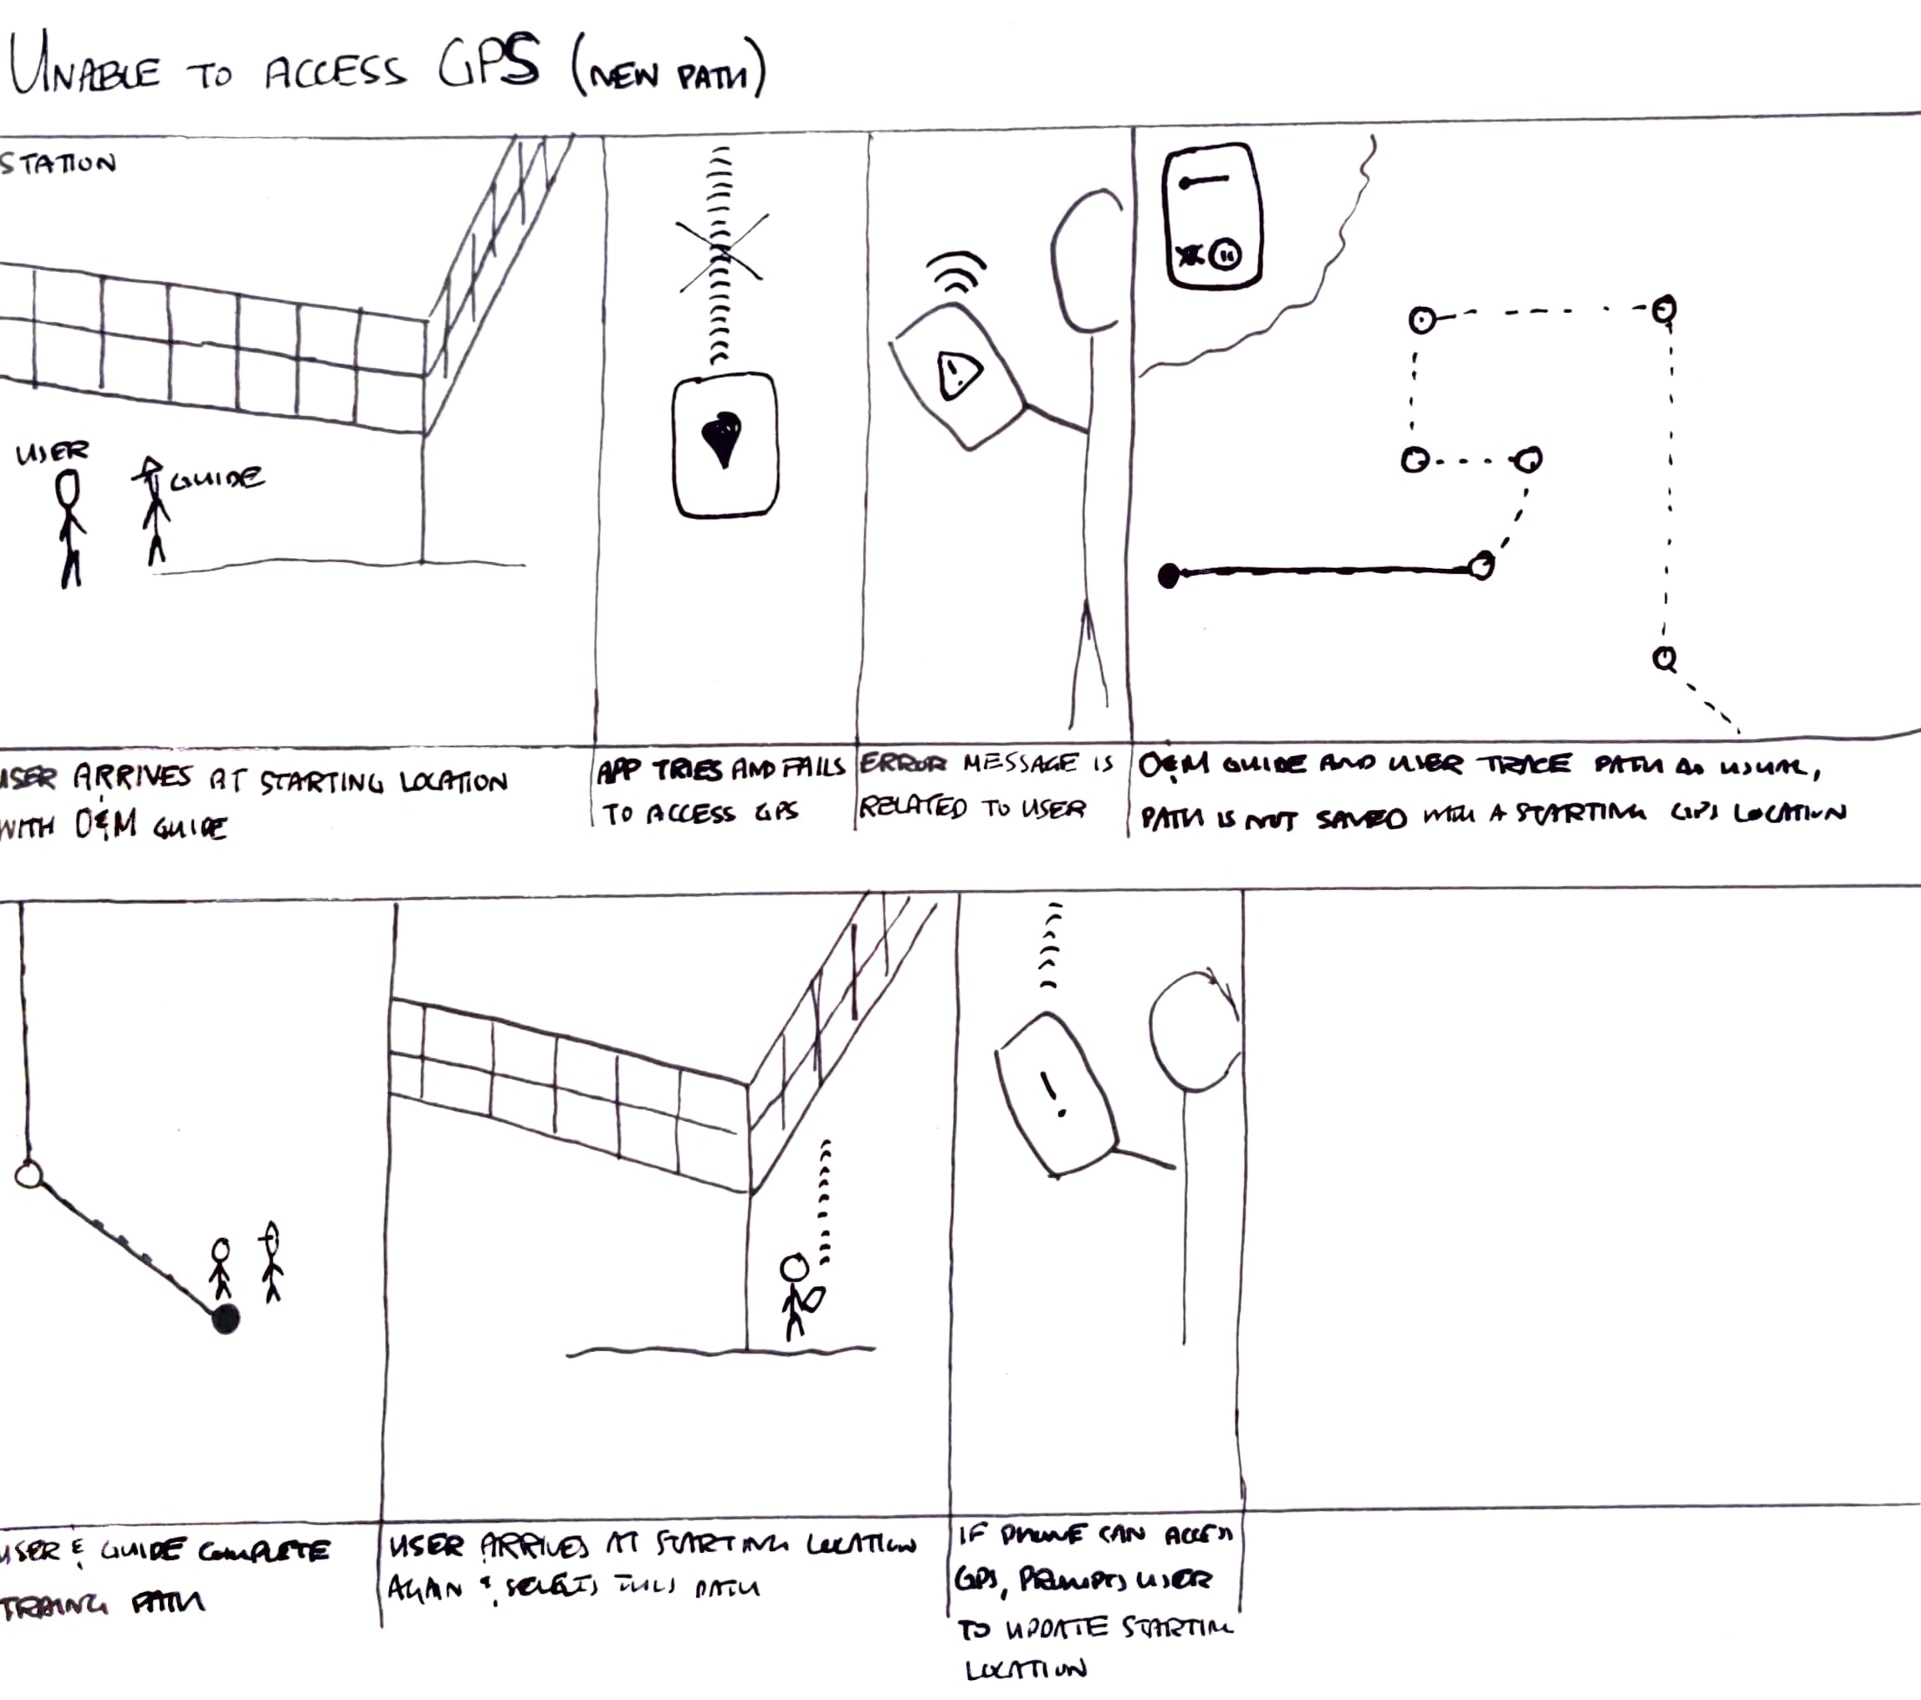 UNABLE TO ACCESS GPS (NEW PATH)
STATION
USER
GUIDE
!
USER ARRIVES AT STARTING LOCATION
WITH O&M GUIDE
APP TRIES AND FAILS
TO ACCESS GPS
ERROR MESSAGE IS
RELATED TO USER
O&M GUIDE AND USER TRACE PATH AS USUAL,
PATH IS NOT SAVED WITH A STARTING GPS LOCATION
!
USER & GUIDE COMPLETE
TRACING PATH
USER ARRIVES AT STARTING LOCATION
AGAIN & SELECTS THIS PATH
IF PHONE CAN ACCESS
GPS, PROMPTS USER
TO UPDATE STARTING
LOCATION